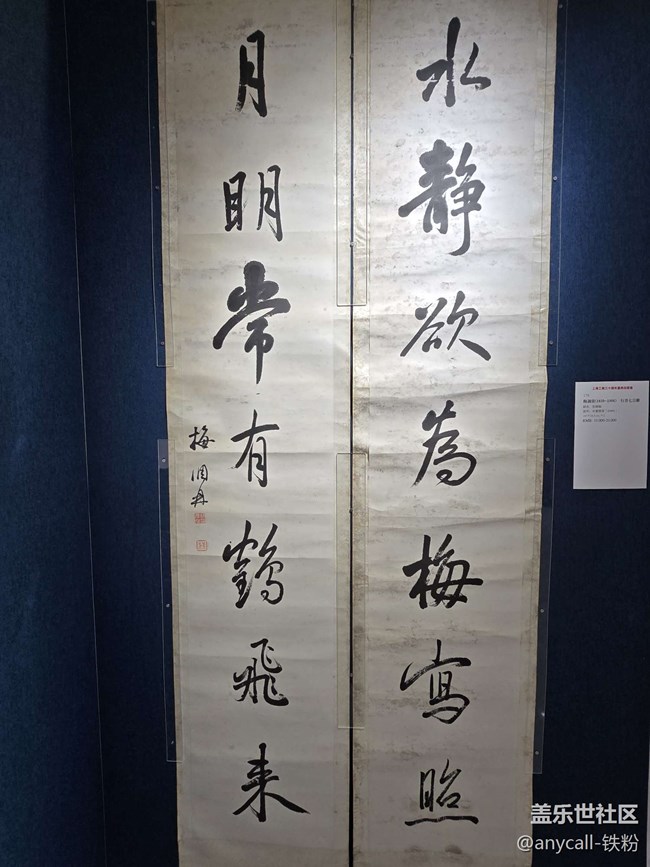 水静欲為梅寫照
月明常有鶴飛来
梅调鼎
盖乐世社区
@anycall-铁粉